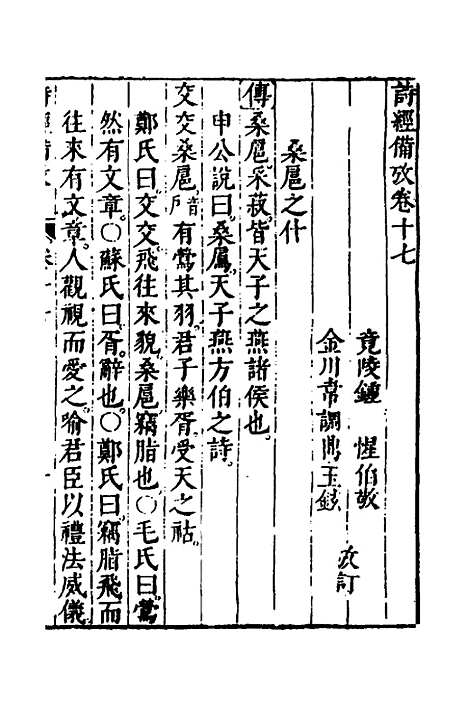 詩經備攷卷十七
竟陵鍾　惺伯敬
金川韋調鼎玉鉉
攷訂
桑扈之什
傳桑扈采菽皆天子之燕諸侯也
申公說曰桑扈天子燕方伯之詩
交交桑扈音户有鶯其羽君子樂胥受天之祜
鄭氏曰交交飛往來貌桑扈竊脂也○毛氏曰鶯
然有文章○蘇氏曰胥辭也○鄭氏曰竊脂飛而
往來有文章人觀視而愛之喻君臣以禮法威儀